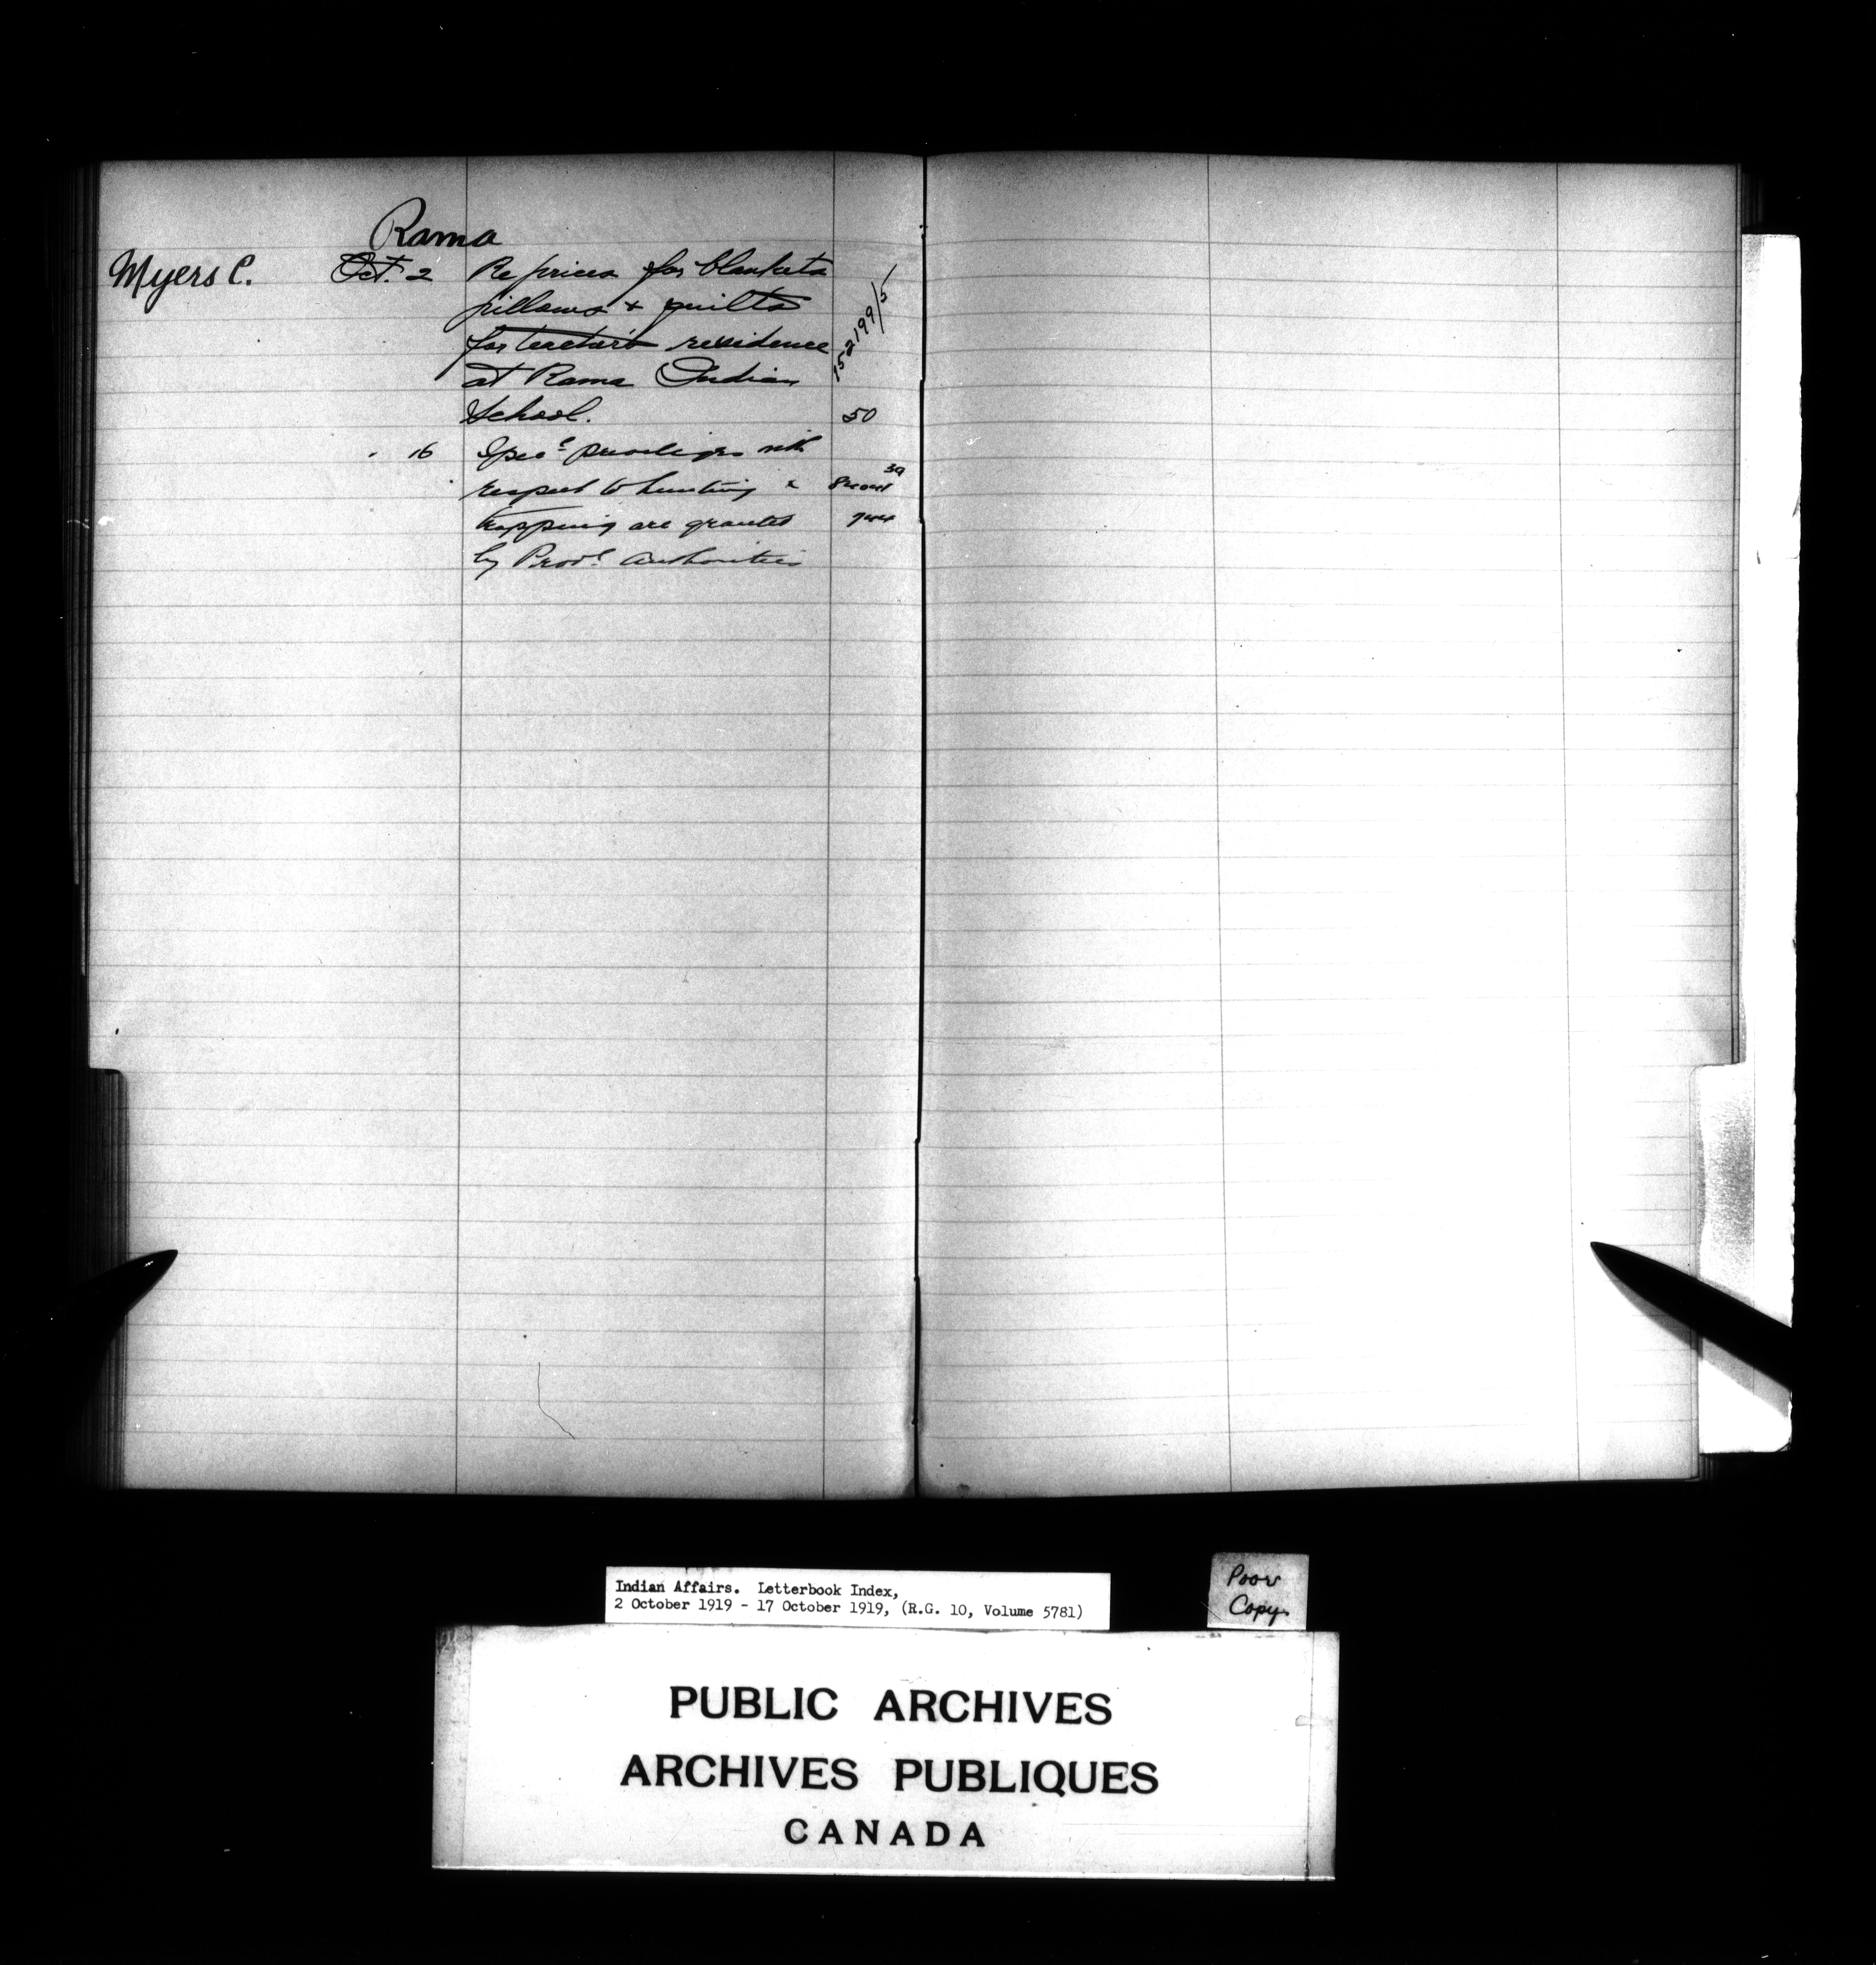 Rama
Myers C. Oct. 2 Re prices for blankets
pillows & quilts
for teacher's residence 152199/5
at Rama Indian
School. 50
" 16 Specl privileges with
respect to hunting & 39
trapping are granted 744
by Provl Authorities
Indian Affairs. Letterbook Index,
2 October 1919 - 17 October 1919, (R.G. 10, Volume 5781)
Poor
Copy
PUBLIC ARCHIVES
ARCHIVES PUBLIQUES
CANADA